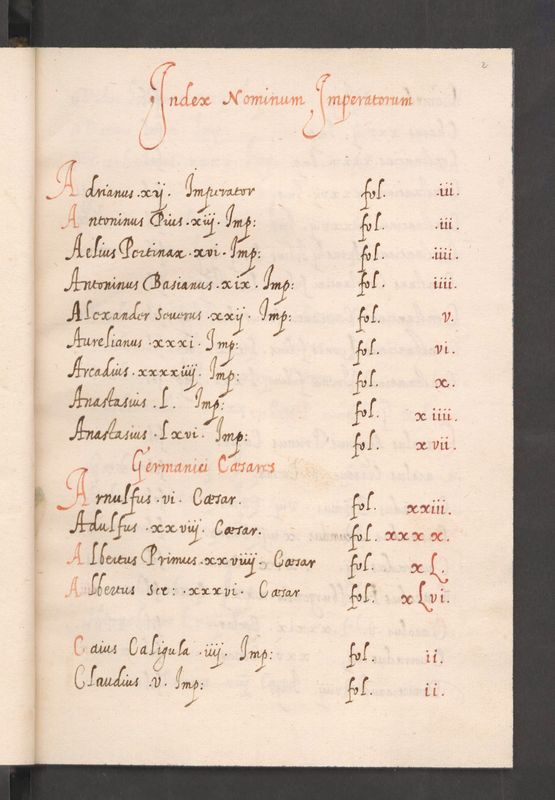 2
Index Nominum Imperatorum
Adrianus .xij. Imperator fol. .iii.
Antoninus Pius .xiij. Imp: fol. .iii.
Aelius Pertinax .xvi. Imp: fol. .iiii.
Antoninus Basianus .xix. Imp: fol. iiii.
Alexander Seuerus .xxij. Imp: fol. v.
Aurelianus .xxxi. Imp: fol. vi.
Arcadius .xxxxiiij. Imp: fol. x.
Anastasius .L. Imp: fol. xiiii.
Anastasius .Lxvi. Imp: fol. xvii.
Germanici Cæsares
Arnulfus .vi. Cæsar. fol. xxiii.
Adulfus .xxviij. Cæsar. fol. xxxx.
Albertus Primus .xxviiij. Cæsar fol. xL.
Allbertus Sec: .xxxvi. Cæsar fol. xLvi.
Caius Caligula .iiij. Imp: fol. ii.
Claudius .v. Imp: fol. ii.